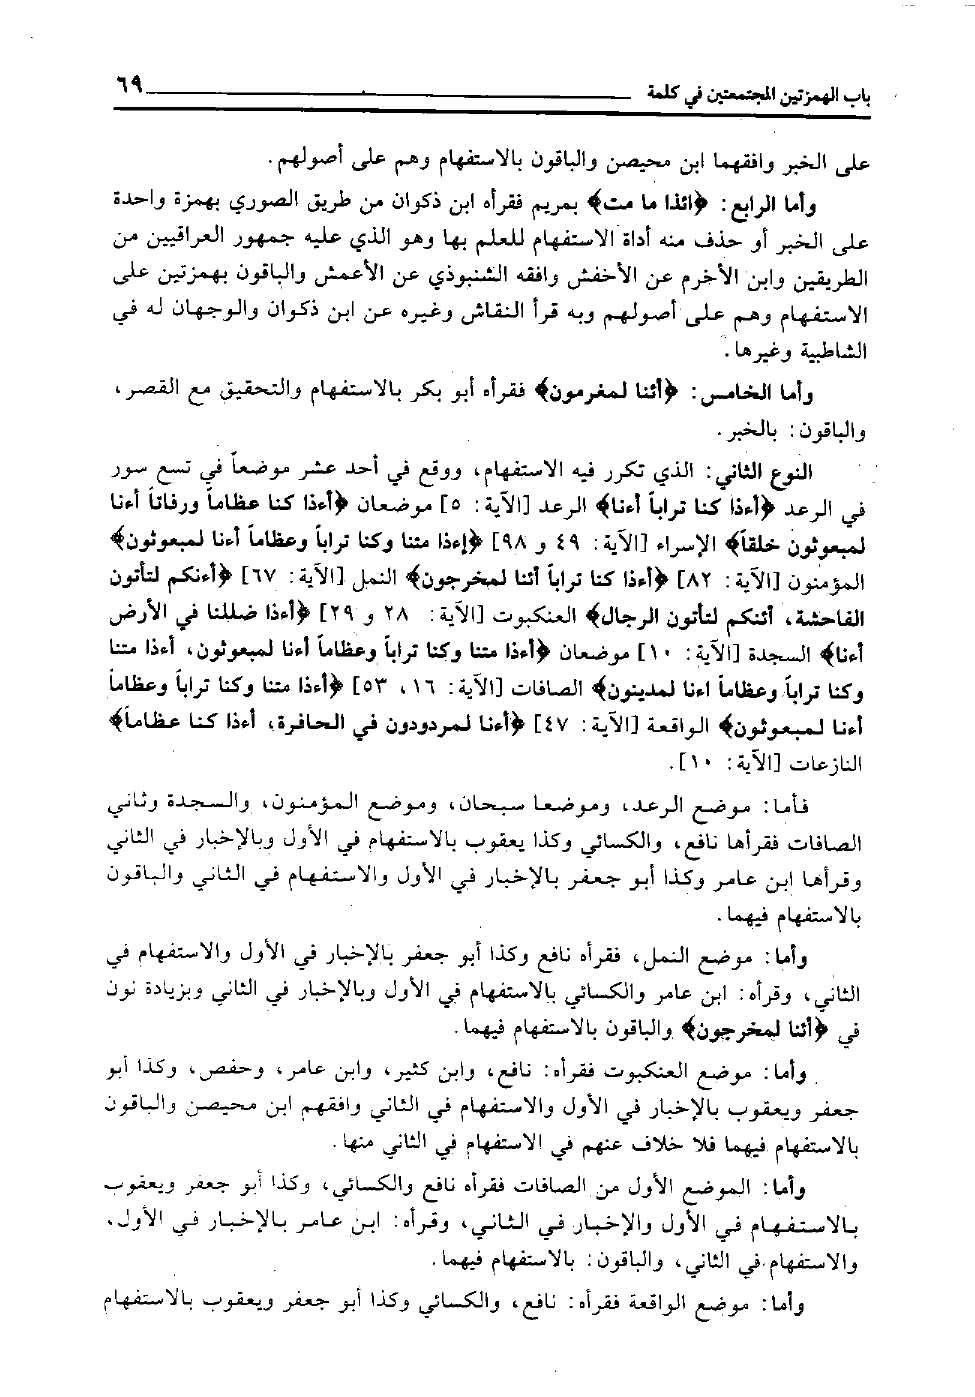 باب الهمزتين المجتمعتين في كلمة ٦٩
على الخبر وافقهما ابن محيصن والباقون بالاستفهام وهم على أصولهم.
وأما الرابع: ﴿ائذا ما مت﴾ بمريم فقرأه ابن ذكوان من طريق الصوري بهمزة واحدة
على الخبر أو حذف منه أداة الاستفهام للعلم بها وهو الذي عليه جمهور العراقيين من
الطريقين وابن الأخرم عن الأخفش وافقه الشنبوذي عن الأعمش والباقون بهمزتين على
الاستفهام وهم على أصولهم وبه قرأ النقاش وغيره عن ابن ذكوان والوجهان له في
الشاطبية وغيرها.
وأما الخامس: ﴿أئنا لمغرمون﴾ فقرأه أبو بكر بالاستفهام والتحقيق مع القصر،
والباقون: بالخبر.
النوع الثاني: الذي تكرر فيه الاستفهام، ووقع في أحد عشر موضعاً في تسع سور
في الرعد ﴿أءذا كنا تراباً أءنا﴾ الرعد [الآية: ٥] موضعان ﴿أءذا كنا عظاماً ورفاتاً أءنا
لمبعوثون خلقاً﴾ الإسراء [الآية: ٤٩ و ٩٨] ﴿إءذا متنا وكنا تراباً وعظاماً أءنا لمبعوثون﴾
المؤمنون [الآية: ٨٢] ﴿أءذا كنا تراباً أئنا لمخرجون﴾ النمل [الآية: ٦٧] ﴿أءنكم لتأتون
الفاحشة، أئنكم لتأتون الرجال﴾ العنكبوت [الآية: ٢٨ و ٢٩] ﴿أءذا ضللنا في الأرض
أءنا﴾ السجدة [الآية: ١٠] موضعان ﴿أءذا متنا وكنا تراباً وعظاماً أءنا لمبعوثون، أءذا متنا
وكنا تراباً وعظاماً اءنا لمدينون﴾ الصافات [الآية: ١٦، ٥٣] ﴿أءذا متنا وكنا تراباً وعظاماً
أءنا لمبعوثون﴾ الواقعة [الآية: ٤٧] ﴿أءنا لمردودون في الحافرة، أءذا كنا عظاماً﴾
النازعات [الآية: ١٠].
فأما: موضع الرعد، وموضعا سبحان، وموضع المؤمنون، والسجدة وثاني
الصافات فقرأها نافع، والكسائي وكذا يعقوب بالاستفهام في الأول وبالإخبار في الثاني
وقرأها ابن عامر وكذا أبو جعفر بالإخبار في الأول والاستفهام في الثاني والباقون
بالاستفهام فيهما.
وأما: موضع النمل، فقرأه نافع وكذا أبو جعفر بالإخبار في الأول والاستفهام في
الثاني، وقرأه: ابن عامر والكسائي بالاستفهام في الأول وبالإخبار في الثاني وبزيادة نون
في ﴿أئنا لمخرجون﴾ والباقون بالاستفهام فيهما.
وأما: موضع العنكبوت فقرأه: نافع، وابن كثير، وابن عامر، وحفص، وكذا أبو
جعفر ويعقوب بالإخبار في الأول والاستفهام في الثاني وافقهم ابن محيصن والباقون
بالاستفهام فيهما فلا خلاف عنهم في الاستفهام في الثاني منها.
وأما: الموضع الأول من الصافات فقرأه نافع والكسائي، وكذا أبو جعفر ويعقوب
بالاستفهام في الأول والإخبار في الثاني، وقرأه: ابن عامر بالإخبار في الأول،
والاستفهام في الثاني، والباقون: بالاستفهام فيهما.
وأما: موضع الواقعة فقرأه: نافع، والكسائي وكذا أبو جعفر ويعقوب بالاستفهام